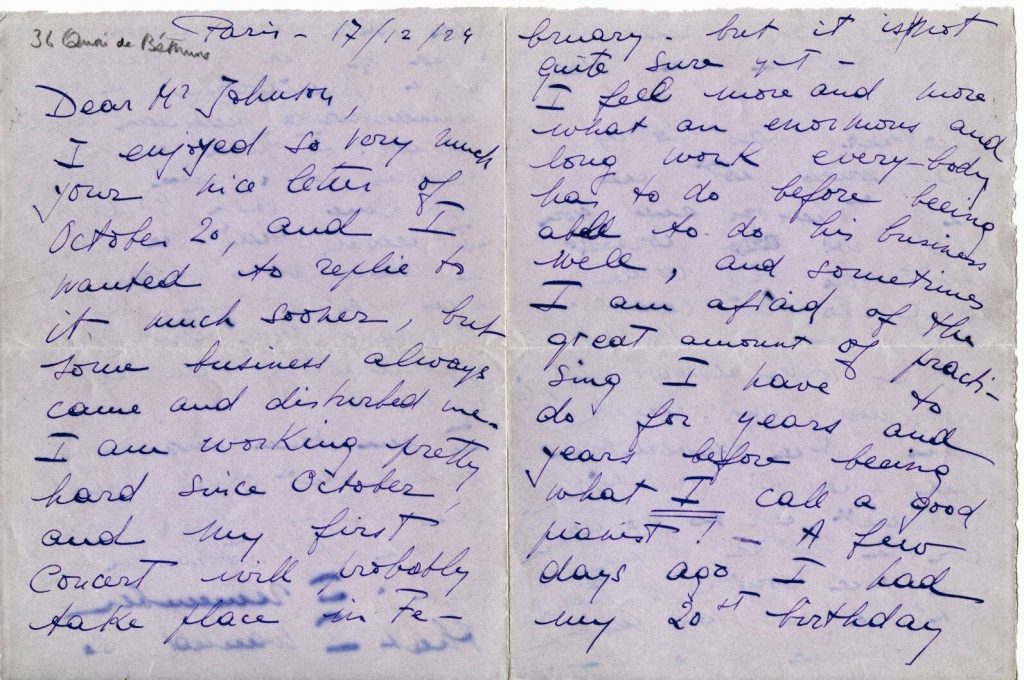 36 Quai de Béthune
Paris - 17/12/24
Dear Mr Johnson,
I enjoyed so very much
your nice letter of
October 20, and I
wanted to replie to
it much sooner, but
some business always
came and disturbed me.
I am working pretty
hard since October,
and my first
Concert will probably
take place in Fe-
bruary - but it is not
quite sure yet -
I feel more and more
what an enormous and
long work every-body
has to do before beeing
able to do his business
well, and sometimes
I am afraid of the
great amount of practi-
sing I have to
do for years and
years before beeing
what I call a good
pianist! - A few
days ago I had
my 20st birthday